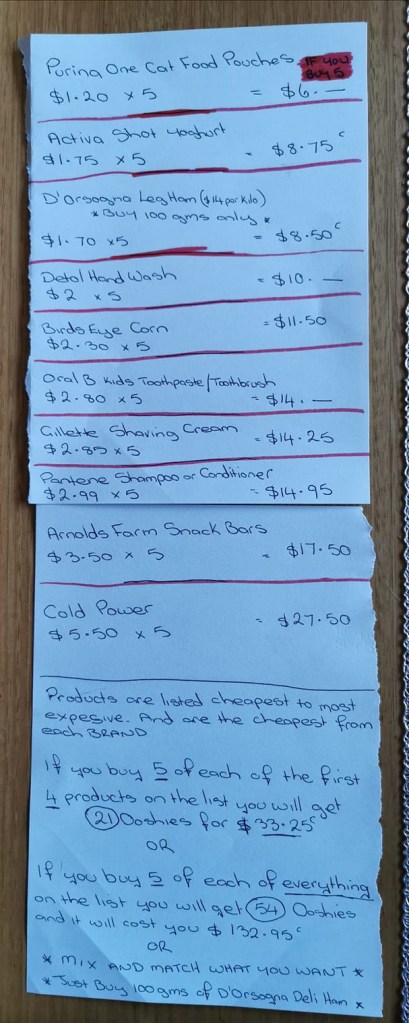 Purina One Cat Food Pouches IF YOU
BUY 5
$1.20 x 5 = $6. —
Activa Shot Yoghurt
$1.75 x 5 = $8.75c
D'Orsogna Leg Ham ($14 per Kilo)
* BUY 100 gms only *
$1.70 x 5 = $8.50c
Detal Hand Wash = $10. —
$2 x 5
Birds Eye Corn = $11.50
$2.30 x 5
Oral B Kids Toothpaste/Toothbrush
$2.80 x 5 = $14. —
Gillette Shaving Cream = $14.25
$2.85 x 5
Pantene Shampoo or Conditioner
$2.99 x 5 = $14.95
Arnolds Farm Snack Bars
$3.50 x 5 = $17.50
Cold Power = $27.50
$5.50 x 5
Products are listed cheapest to most
expesive. And are the cheapest from
each BRAND
If you buy 5 of each of the first
4 products on the list you will get
21 Ooshies for $33.25c
OR
If you buy 5 of each of everything
on the list you will get 54 Ooshies
and it will cost you $132.95c
OR
* MIX AND MATCH WHAT YOU WANT *
* Just Buy 100gms of D'Orsogna Deli Ham *